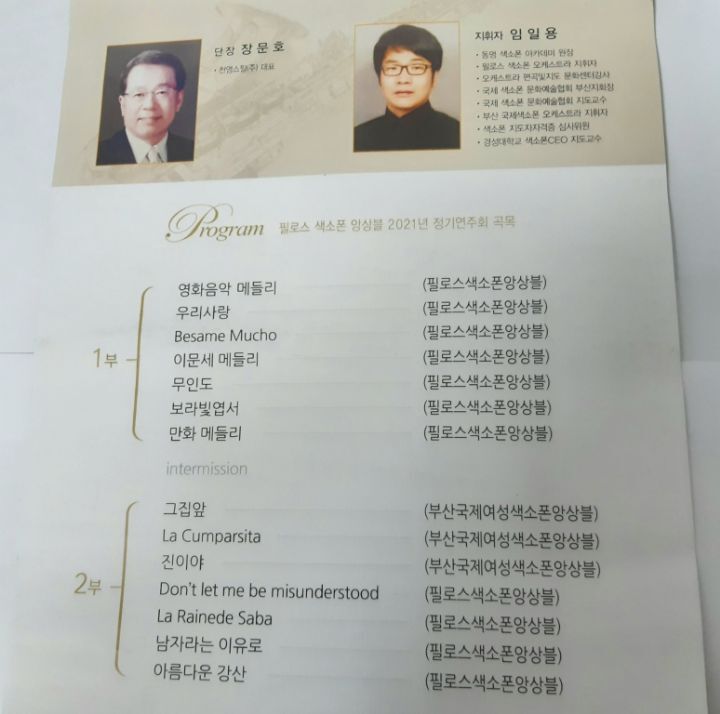 단장 장문호
• 천영스틸(주) 대표
지휘자 임일용
• 동명 색소폰 아카데미 원장
• 필로스 색소폰 오케스트라 지휘자
• 오케스트라 편곡및지도 문화센터강사
• 국제 색소폰 문화예술협회 부산지회장
• 국제 색소폰 문화예술협회 지도교수
• 부산 국제색소폰 오케스트라 지휘자
• 색소폰 지도자자격증 심사위원
• 경성대학교 색소폰CEO 지도교수
Program 필로스 색소폰 앙상블 2021년 정기연주회 곡목
1부
영화음악 메들리 (필로스색소폰앙상블)
우리사랑 (필로스색소폰앙상블)
Besame Mucho (필로스색소폰앙상블)
이문세 메들리 (필로스색소폰앙상블)
무인도 (필로스색소폰앙상블)
보라빛엽서 (필로스색소폰앙상블)
만화 메들리 (필로스색소폰앙상블)
intermission
2부
그집앞 (부산국제여성색소폰앙상블)
La Cumparsita (부산국제여성색소폰앙상블)
진이야 (부산국제여성색소폰앙상블)
Don't let me be misunderstood (필로스색소폰앙상블)
La Rainede Saba (필로스색소폰앙상블)
남자라는 이유로 (필로스색소폰앙상블)
아름다운 강산 (필로스색소폰앙상블)